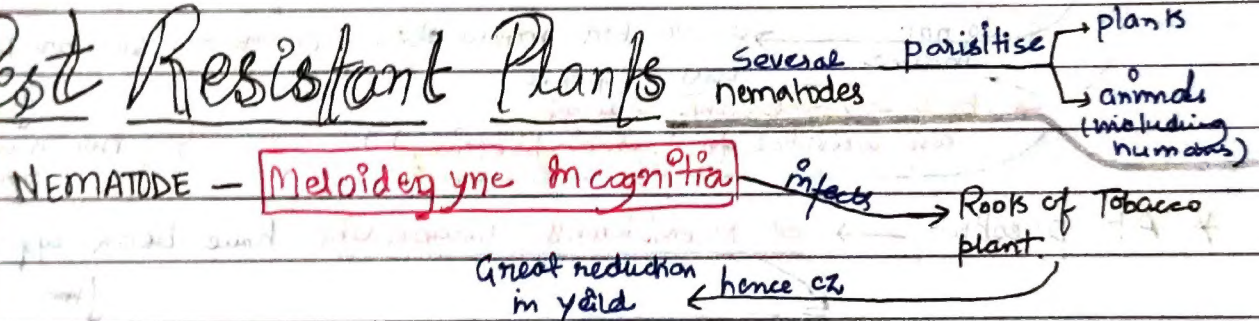 est Resistant Plants
Several nematodes parisitise → plants
→ animals (including humans)
NEMATODE – Meloidegyne Incognitia infects → Roots of Tobacco plant.
Great reduction in yeild ← hence cz